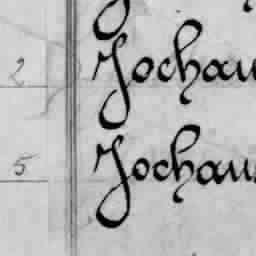 2 Jochau
5 Jochau